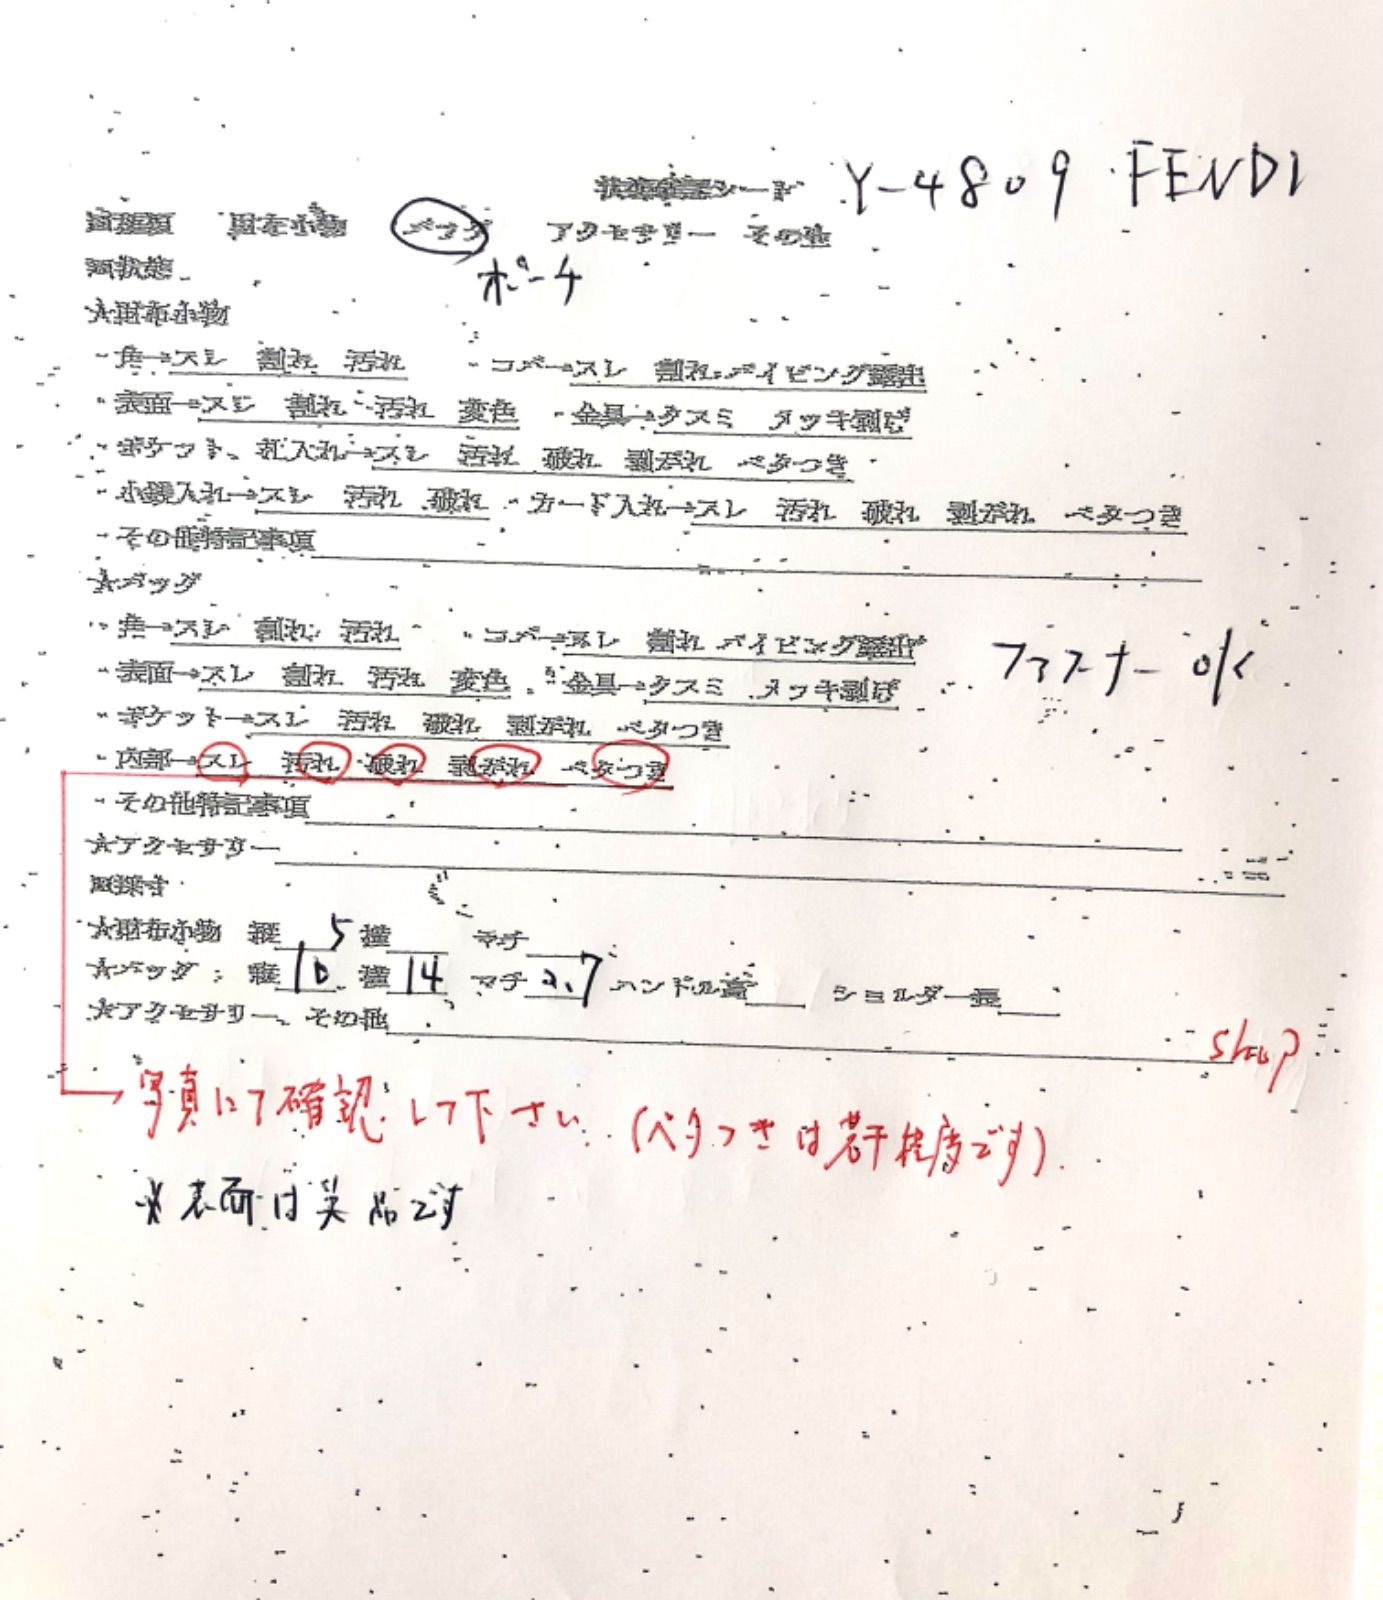 状態確認シート Y-4809 FENDI
回種類 財布小物 バッグ アクセサリー その他
回状態 ポーチ
☆財布小物
・角→スレ 割れ 汚れ ・コバ→スレ 割れ パイピング露出
・表面→スレ 割れ 汚れ 変色 ・金具→クスミ メッキ剥げ
・ポケット、札入れ→スレ 汚れ 破れ 剥がれ ベタつき
・小銭入れ→スレ 汚れ 破れ ・カード入れ→スレ 汚れ 破れ 剥がれ ベタつき
・その他特記事項
☆バッグ
・角→スレ 割れ 汚れ ・コバ→スレ 割れ パイピング露出
・表面→スレ 割れ 汚れ 変色 ・金具→クスミ メッキ剥げ ファスナー OK
・ポケット→スレ 汚れ 破れ 剥がれ ベタつき
・内部→スレ 汚れ 破れ 剥がれ ベタつき
・その他特記事項
☆アクセサリー
回採寸
☆財布小物 縦 横 マチ
☆バッグ: 縦 10.5 横 14 マチ 2.7 ハンドル高 ショルダー長
☆アクセサリー、その他
写真にて確認して下さい (ベタつきは若干程度です).
※表面は美品です